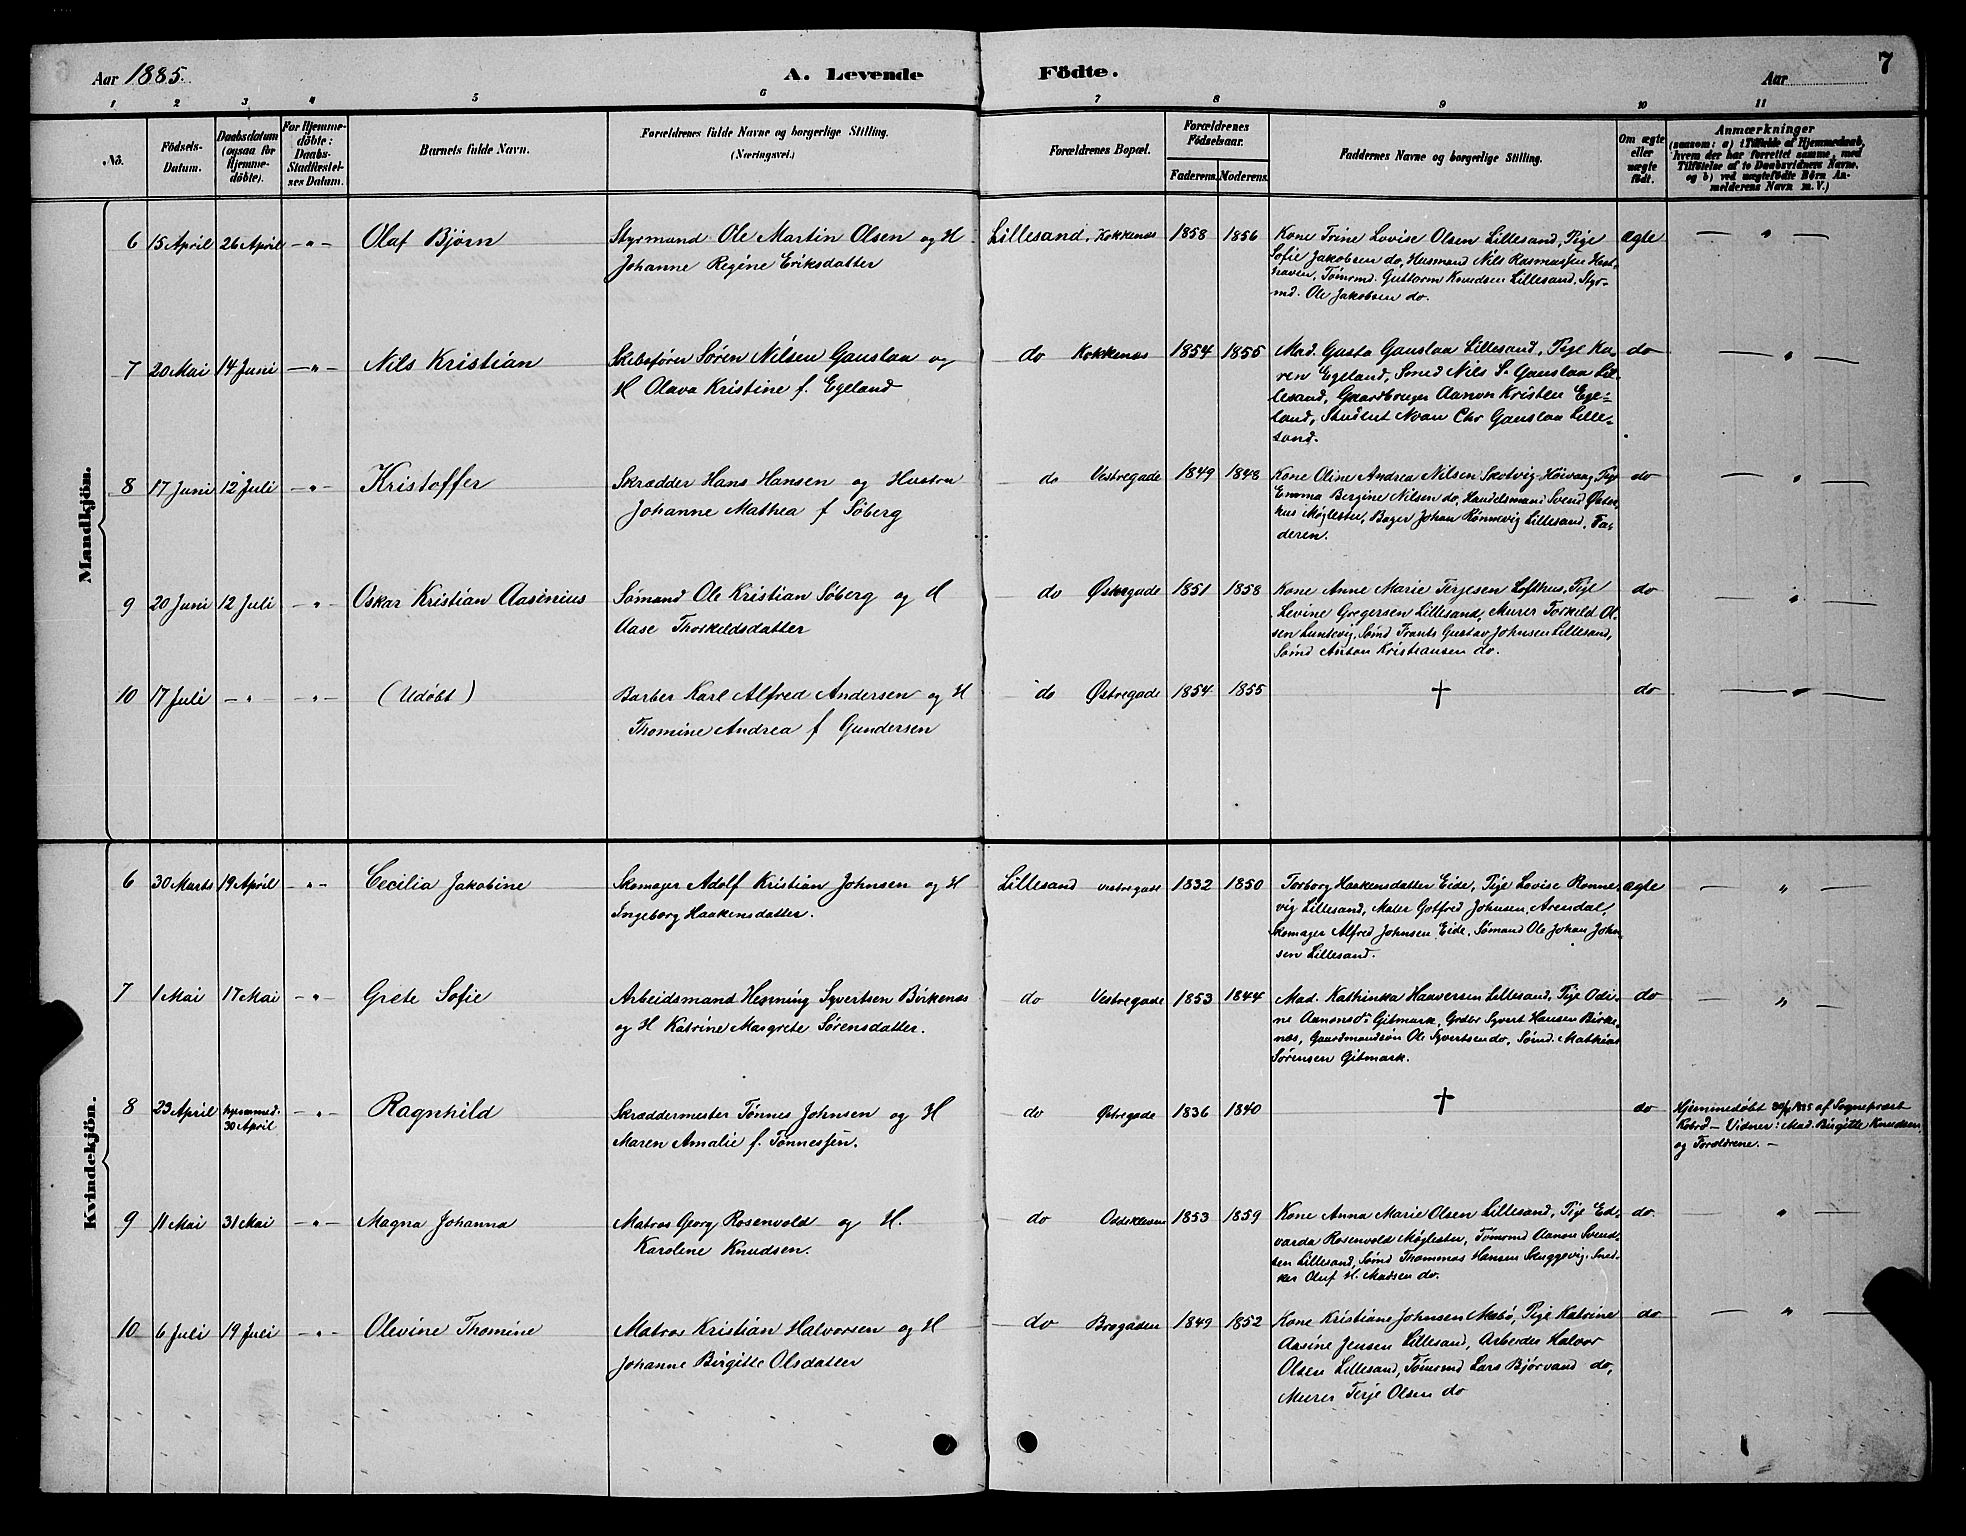 Aar 1885.
A. Levende Födte.
Aar
7
1 2 3 4 5 6 7 8 9 10 11
No.
Födsels-
Datum.
Daabsdatum
(ogsaa for
Hjemme-
döbte).
For Hjemme-
döbte:
Daabs-
Stadfæstel-
ses Datum.
Barnets fulde Navn.
Forældrenes fulde Navne og borgerlige Stilling.
(Næringsvei.)
Forældrenes Bopæl.
Forældrenes
Födselsaar.
Faderens. Moderens.
Faddernes Navne og borgerlige Stilling.
Om ægte
eller
uægte
födt.
Anmærkninger
(saasom: a) i Tilfælde af Hjemmedaab,
hvem der har forrettet samme, med
Tilföielse af to Daabsvidners Navne.
og b) ved uægtefödte Börn An-
melderens Navn m. V.)
Mandkjön.
6 15 April 26 April " Olaf Bjørn
Styrmand Ole Martin Olsen og H
Johanne Regine Eriksdatter
Lillesand, Kokkenes 1858 1856
Kone Trine Lovise Olsen Lillesand, Pige
Sofie Jakobsen do, Husmand Nils Rasmussen Hest-
haven, Tømrmd. Guttorm Knudsen Lillesand, Styr-
md. Ole Jakobsen do.
ægte — " —
7 20 Mai 14 Juni — " — Nils Kristian
Skibsfører Søren Nilsen Gauslaa og
H Olava Kristine f. Egeland
do Kokkenes 1854 1855
Mad. Gusta Gauslaa Lillesand, Pige Ka-
ren Egeland, Smed Nils S. Gauslaa Lil-
lesand, Gaardbruger Aanon Kristen Ege-
land, Student Noan Chr Gauslaa Lille-
sand.
do — " —
8 17 Juni 12 Juli — " — Kristoffer
Skrædder Hans Hansen og Hustru
Johanne Mathea f Söberg
do Vestregade 1849 1848
Kone Oline Andrea Nilsen Skotvig Höivaag, Pige
Emma Bergine Nilsen do, Handelsmand Svend Øster-
hus Møglestu, Bager Johan Rønnevig Lillesand, Fa-
deren.
do — " —
9 20 Juni 12 Juli — " Oskar Kristian Aasenius
Sømand Ole Kristian Söberg og H
Aase Thorkildsdatter
do Østregade 1851 1858
Kone Anne Marie Terjesen Lofthus, Pige
Levine Gregersen Lillesand, Murer Torkild Ol-
sen Lundevig, Sømd Frants Gustav Johnsen Lillesand,
Sømd Anton Kristiansen do.
do — " —
10 17 Juli — " — " (Udøbt)
Barber Karl Alfred Andersen og H
Thomine Andrea f Gundersen
do Østregade 1854 1855
†
do — " —
Kvindekjön.
6 30 Marts 19 April — " — Cecilia Jakobine
Skomager Adolf Kristian Johnsen og H
Ingeborg Haakensdatter.
Lillesand Vestregade 1832 1850
Torborg Haakensdatter Eide, Pige Lovise Rønne-
vig Lillesand, Maler Gotfred Johnsen, Arendal,
Skomager Alfred Johnsen Eide, Sømand Ole Johan John-
sen Lillesand.
ægte — " —
7 1 Mai 17 Mai — " — Grete Sofie
Arbeidsmand Henning Syvertsen Birkenes
og H Katrine Margrete Sørensdatter.
do Vestregade 1853 1844
Mad. Kathinka Haaversen Lillesand, Pige Odi-
ne Aanonsdr Gitmark, Grdbr Syvert Hansen Birke-
nes, Gaardmandsøn Ole Syvertsen do, Sømd. Mathias
Sørensen Gitmark.
do — " —
8 23 April hjemmed.
30 April — " — Ragnhild
Skræddermester Tønnes Johnsen og H
Maren Amalie f. Tønnessen.
do Østregade 1836 1840
†
do
Hjemmedøbt 30/4 1885 af Sognepræst
— Vidner: Mad. Birgitte Knudsen
og Forældrene. —
9 11 Mai 31 Mai — " — Magna Johanna
Matros Georg Rosenvold og H.
Karoline Knudsen.
do 1853 1859
Kone Anna Marie Olsen Lillesand, Pige Ed-
varda Rosenvold Møglestu, Tømrmd Aanon Svend-
sen Lillesand, Sømd Thommas Hansen Skuggevig, Sned-
ker Oluf H. Madsen do.
do. — " —
10 6 Juli 19 Juli — " — Olevine Thomine
Matros Kristian Halvorsen og H
Johanne Birgitte Olsdatter
do Brogaden 1849 1852
Kone Kristiane Johnsen Mebø, Pige Katrine
Aasine Jensen Lillesand, Arbeider Halvor
Olsen Lillesand, Tømrmd Lars Bjørvand do,
Murer Terje Olsen do
do — " —